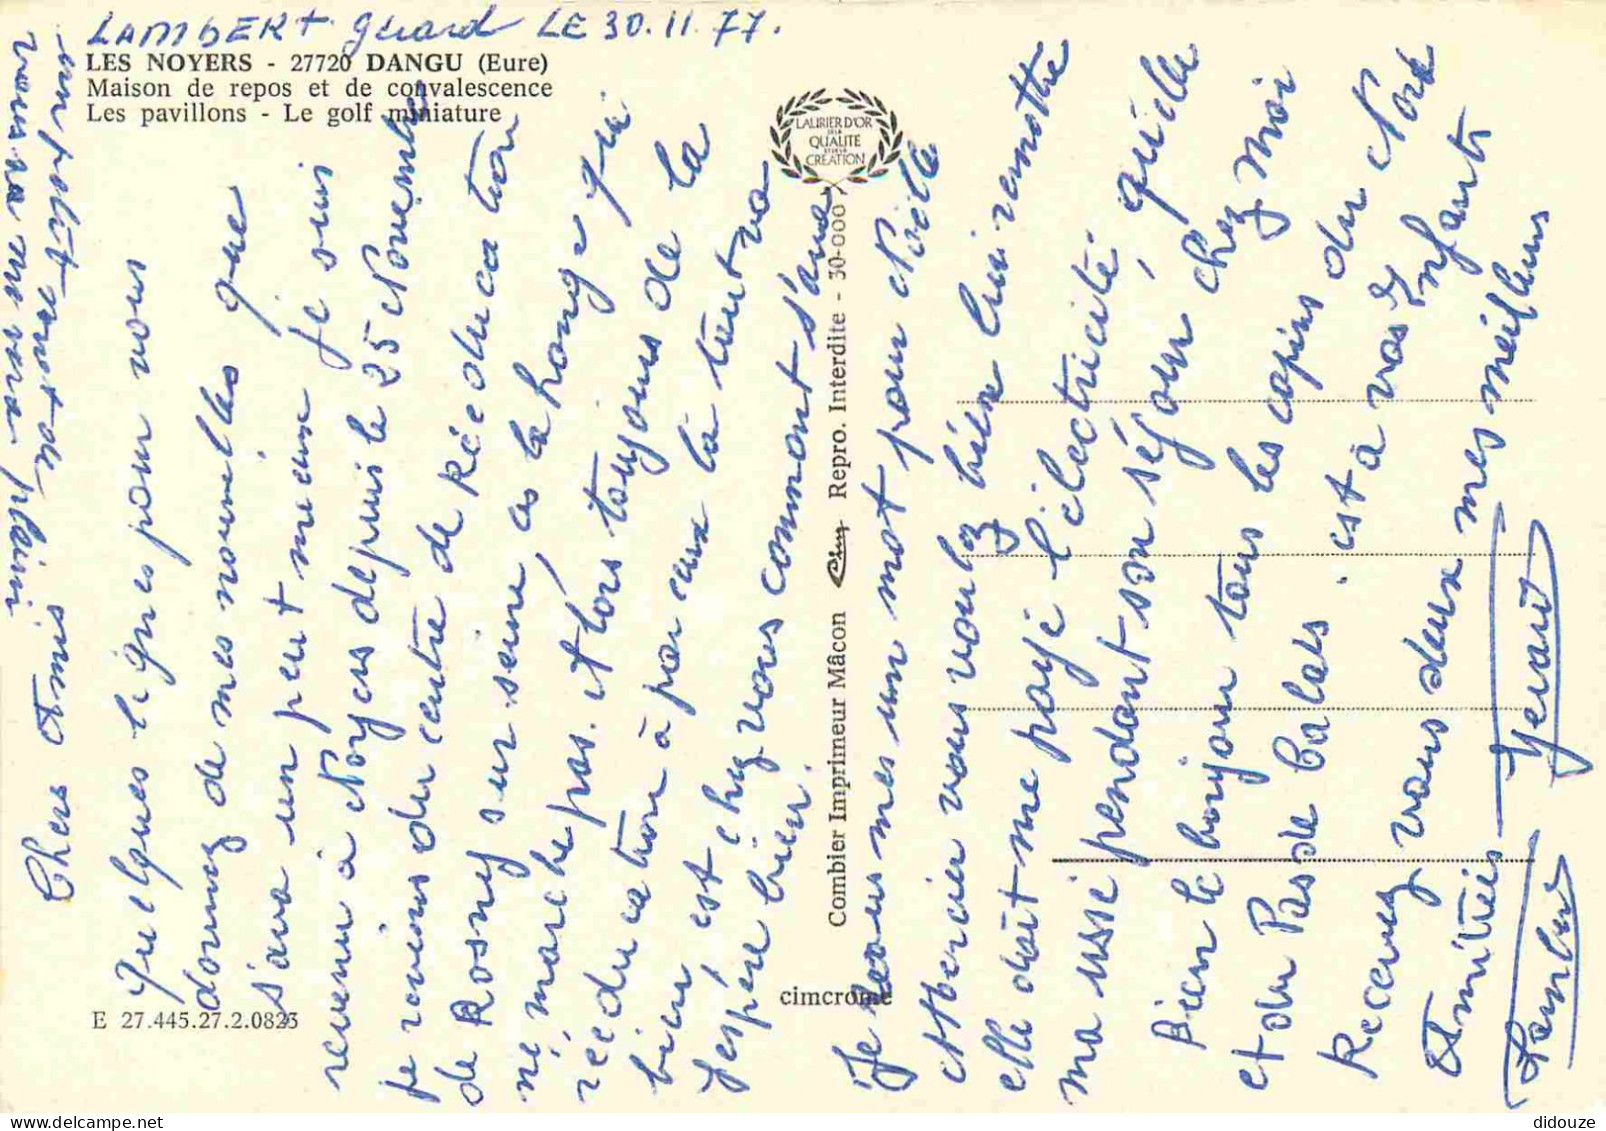 LAMBERT Gérard LE 30.11.77.
LES NOYERS - 27720 DANGU (Eure)
Maison de repos et de convalescence
Les pavillons - Le golf miniature
LAURIER D'OR
DE LA
QUALITÉ
ET DE LA
CRÉATION
Chers Amis
Quelques lignes pour vous
donnez de mes nouvelles que
s'ava un peut mieux je suis
revenu à Noyers depuis le 25 Novembre
je reviens du centre de Rééducation
de Rosny sur seine, as la hange qui
ne marche pas. et lors toujours de la
rééducation à par ceux là tout va
bien, est chez vous comment s'ava
J'espère bien.
Je
mes un mot pour Noël
vous voulez bien lui remettre
elle doit me payé l'électricité
ma ussé pendant son séjour, qu'elle
chez moi
Bien le bonjour tous les copins du Nord
et du Pas de Calais. est à vos Enfants
Recevez vous deux mes meilleurs
Amitiés
Gérard
Lambert
vous ma
plaini
Combier Imprimeur Mâcon Cim Repro. Interdite - 30-000
cimcrome
E 27.445.27.2.0823
didouze